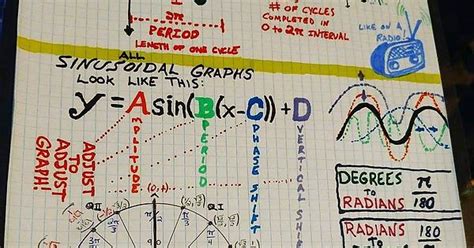 2π
PERIOD
LENGTH OF ONE CYCLE
# OF CYCLES
COMPLETED IN
0 TO 2π INTERVAL
LIKE ON A
RADIO
ALL
SINUSOIDAL GRAPHS
LOOK LIKE THIS:
y = A sin(B(x-C)) + D
AMPLITUDE
PERIOD
PHASE SHIFT
VERTICAL SHIF
ADJUST
TO
ADJUST
GRAPH!
DEGREES
TO
RADIANS
π
180
RADIANS
180
QII
QI
π
2
3π
4
π
4